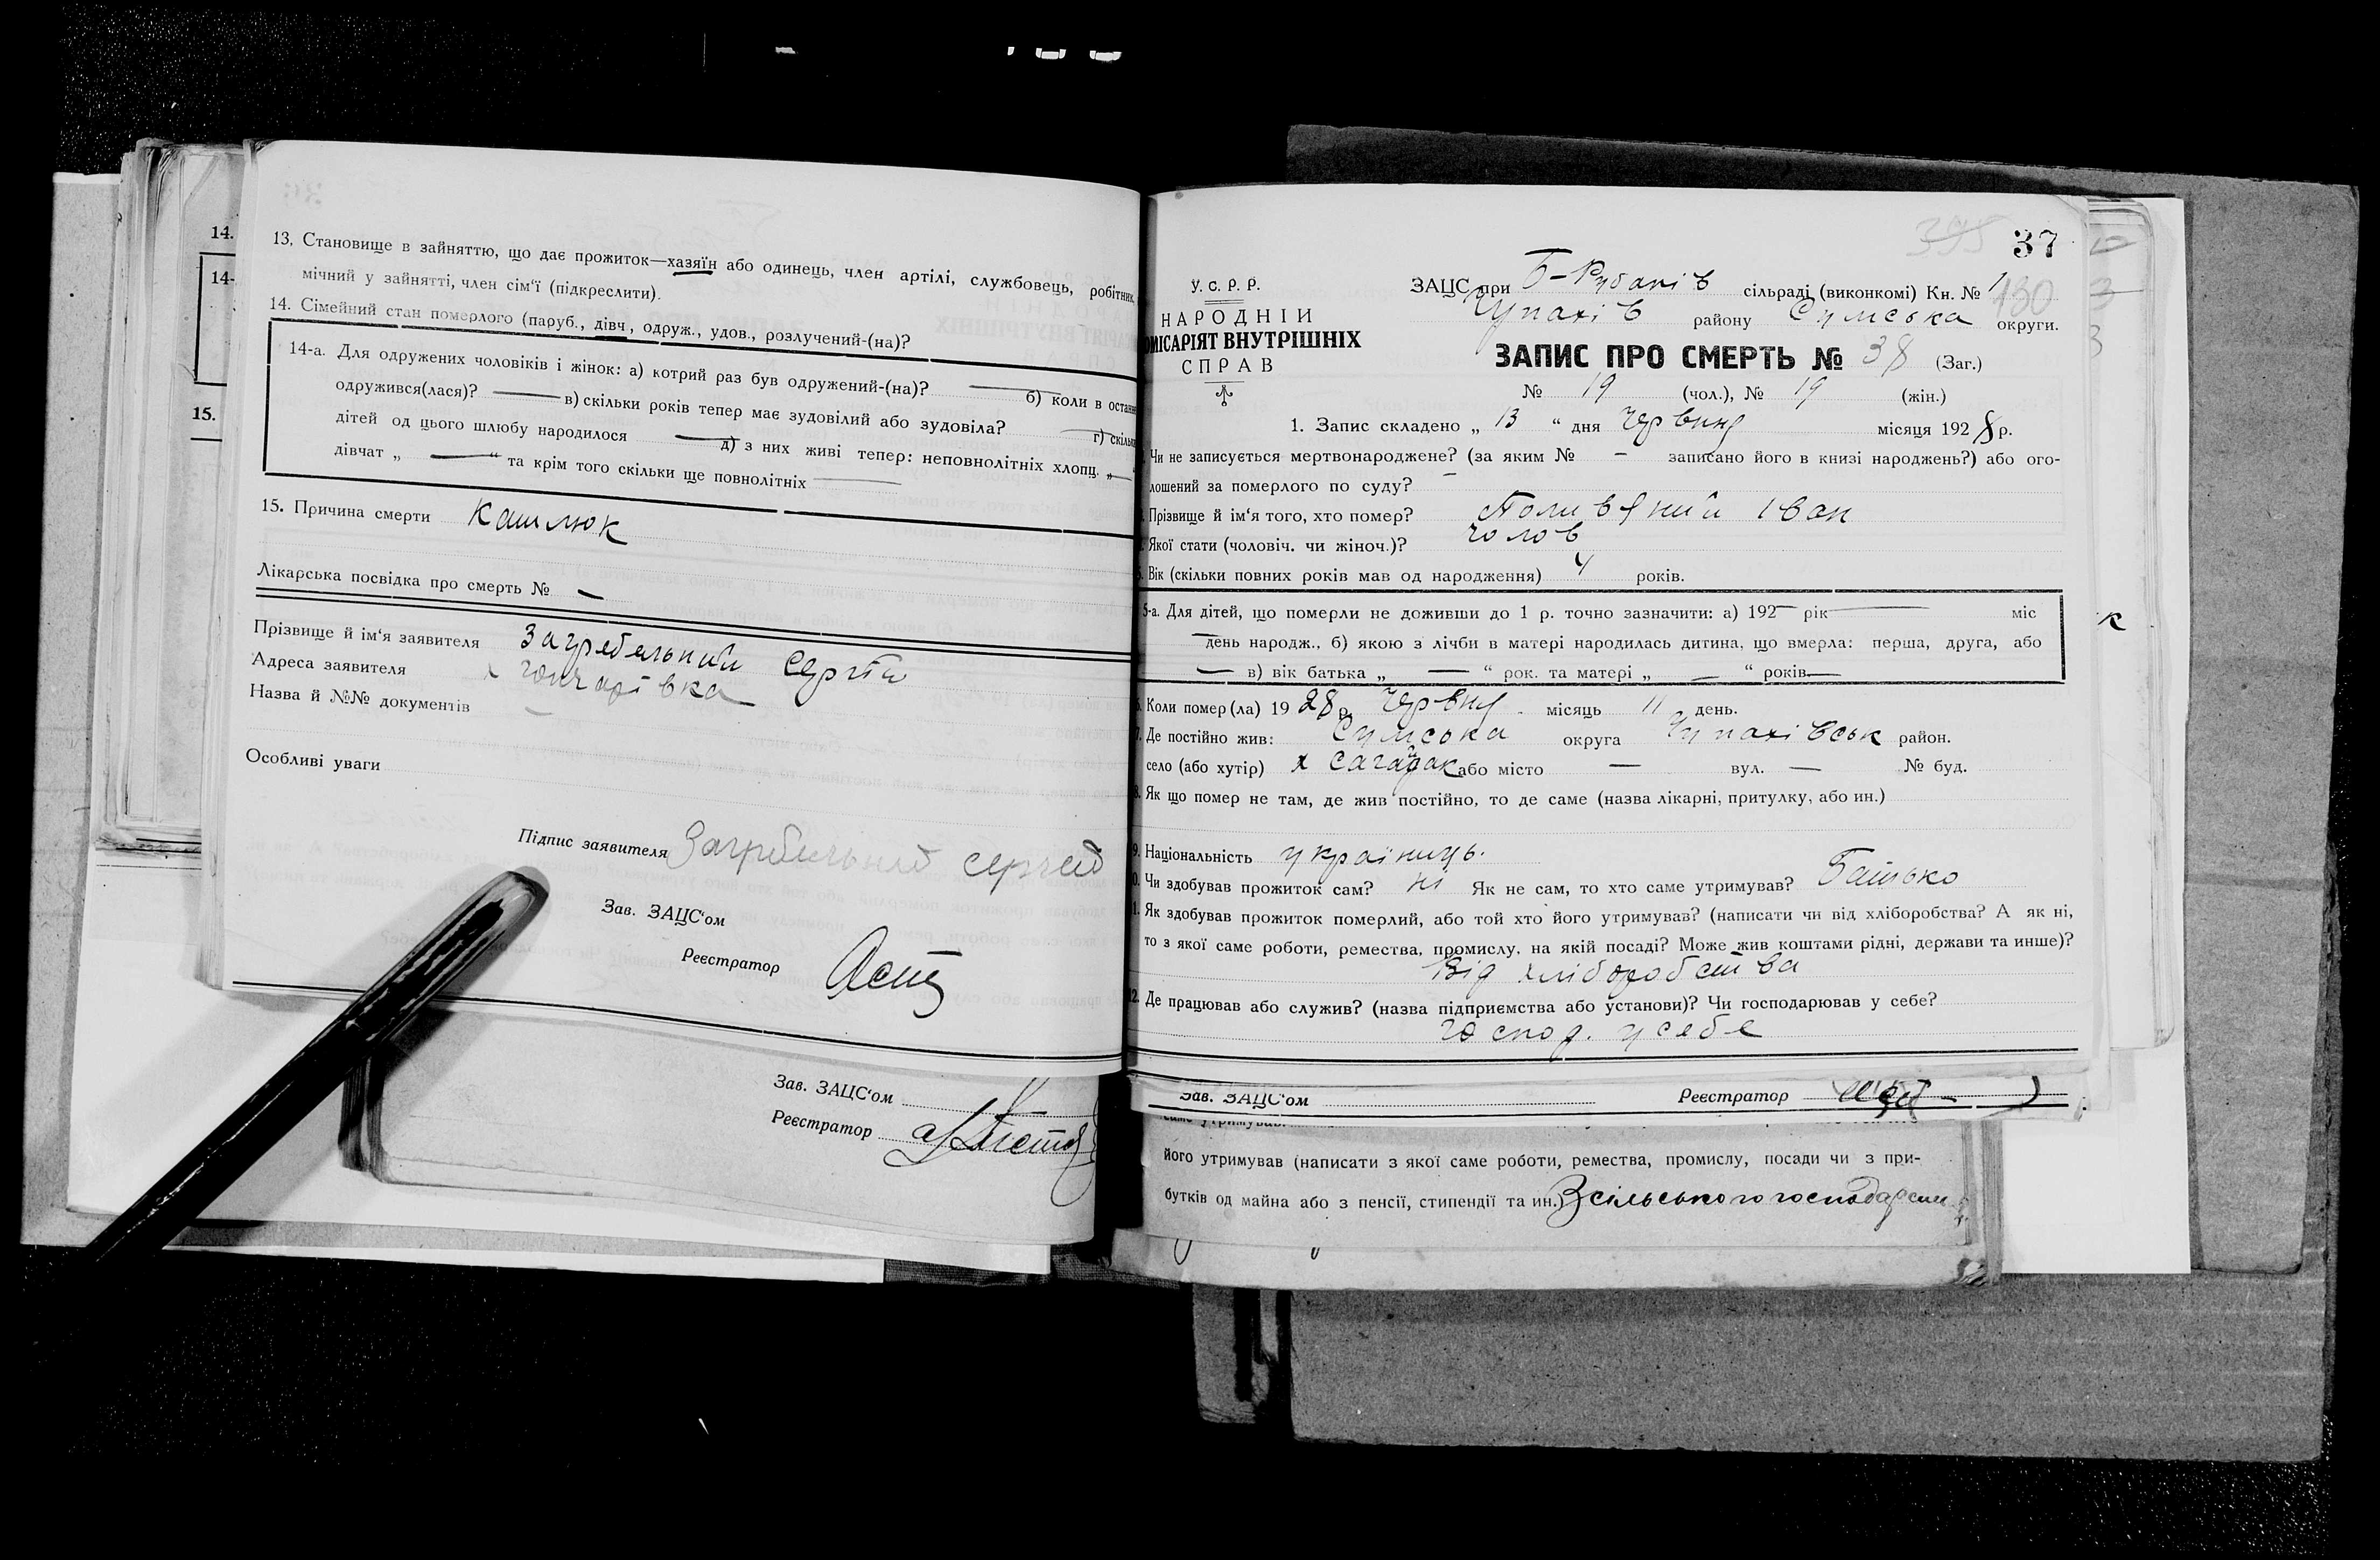 14.
14-
15.
13. Становище в зайняттю, що дає прожиток—хазяїн або одинець, член артілі, службовець, робітник,
мічний у зайнятті, член сім'ї (підкреслити).
14. Сімейний стан померлого (паруб., дівч., одруж., удов., розлучений-(на)?
14-а. Для одружених чоловіків і жінок: а) котрий раз був одружений-(на)? б) коли в останн
одружився(лася)? в) скільки років тепер має зудовілий або зудовіла? г) скільк
дітей од цього шлюбу народилося д) з них живі тепер: неповнолітніх хлопц. „
дівчат „ — “ та крім того скільки ще повнолітніх
15. Причина смерти Кашлюк
Лікарська посвідка про смерть № —
Прізвище й ім'я заявителя Загребельний Сергій
Адреса заявителя х Гончарівка
Назва й №№ документів —
Особливі уваги
Підпис заявителя Загребельний Сергей
Зав. ЗАЦС'ом
Реєстратор
Зав. ЗАЦС'ом
Реєстратор
37
395
130
У. С. Р. Р.
НАРОДНІЙ
ОМІСАРІЯТ ВНУТРІШНІХ
СПРАВ
ЗАЦС при Б-Рубанів сільраді (виконкомі) Кн. № 1
Чупахів району Сумська округи.
ЗАПИС ПРО СМЕРТЬ № 38 (Заг.)
№ 19 (чол.), № 19 (жін.)
1. Запис складено „ 13 “ дня Червня місяця 1928 р.
Чи не записується мертвонароджене? (за яким № — записано його в книзі народжень?) або ого-
лошений за померлого по суду? —
Прізвище й ім'я того, хто помер? Поливяний Іван
Якої стати (чоловіч. чи жіноч.)? Чолов
Вік (скільки повних років мав од народження) 4 років.
5-а. Для дітей, що померли не доживши до 1 р. точно зазначити: а) 192— рік міс
день народж., б) якою з лічби в матері народилась дитина, що вмерла: перша, друга, або
— в) вік батька „ — “ рок. та матері „ — “ років
Коли помер(ла) 1928 р. Червня місяць 11 день.
Де постійно жив: Сумська округа Чупахівськ район.
село (або хутір) х Сагайдак або місто — вул. — № буд.
Як що помер не там, де жив постійно, то де саме (назва лікарні, притулку, або ин.)
9. Національність українць.
0. Чи здобував прожиток сам? ні Як не сам, то хто саме утримував? Батько
1. Як здобував прожиток померлий, або той хто його утримував? (написати чи від хліборобства? А як ні,
то з якої саме роботи, ремества, промислу, на якій посаді? Може жив коштами рідні, держави та инше)?
Від хліборобства
2. Де працював або служив? (назва підприємства або установи)? Чи господарював у себе?
господ. у себе
Зав. ЗАЦС'ом Реєстратор
його утримував (написати з якої саме роботи, ремества, промислу, посади чи з при-
бутків од майна або з пенсії, стипендії та ин.) З сільського господарств
к